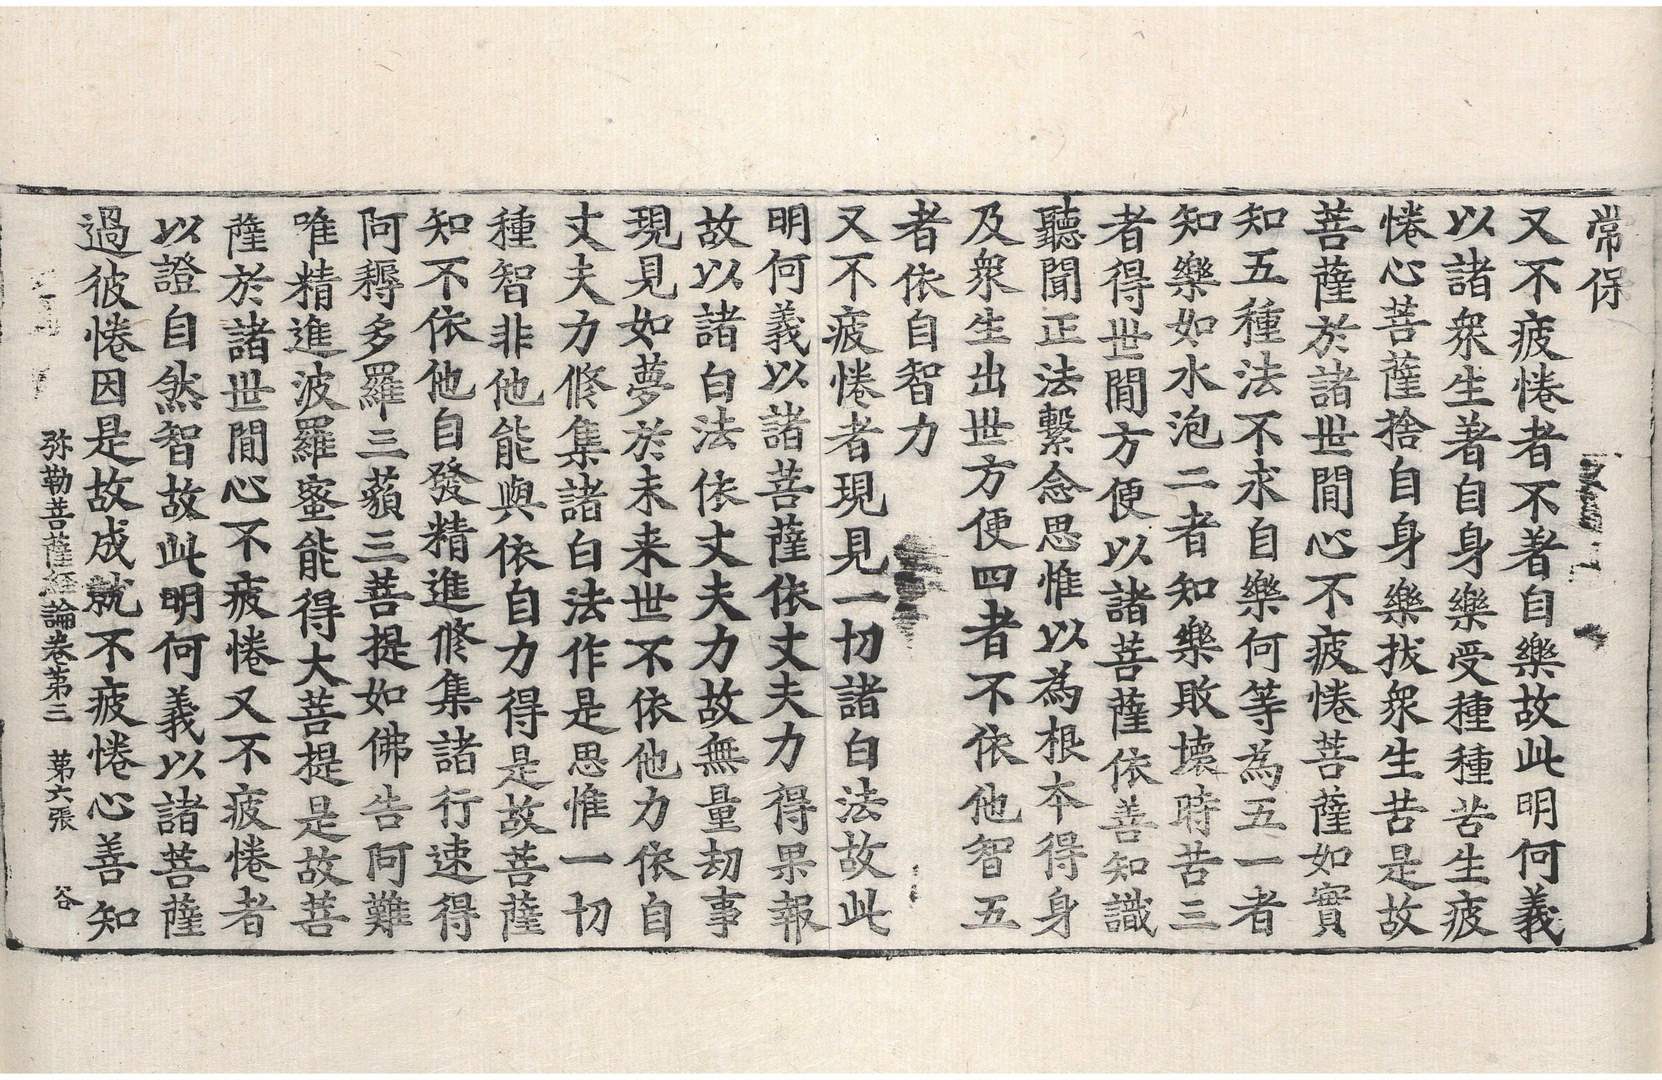 常保
又不疲惓者不著自樂故此明何義
以諸衆生著自身樂受種種苦生疲
惓心菩薩捨自身樂拔衆生苦是故
菩薩於諸世間心不疲惓菩薩如實
知五種法不求自樂何等為五一者
知樂如水泡二者知樂敗壞時苦三
者得世間方便以諸菩薩依善知識
聽聞正法繫念思惟以為根本得身
及衆生出世方便四者不依他智五
者依自智力
又不疲惓者現見一切諸白法故此
明何義以諸菩薩依丈夫力得果報
故以諸白法依丈夫力故無量劫事
現見如夢於未来世不依他力依自
丈夫力修集諸白法作是思惟一切
種智非他能與依自力得是故菩薩
知不依他自發精進修集諸行速得
阿耨多羅三藐三菩提如佛告阿難
唯精進波羅蜜能得大菩提是故菩
薩於諸世間心不疲惓又不疲惓者
以證自然智故此明何義以諸菩薩
過彼惓因是故成就不疲惓心善知
弥勒菩薩經論卷第三 第六張 谷